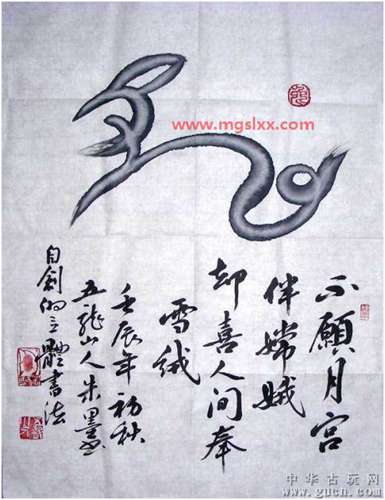 www.mgslxx.com
不愿月宫
伴嫦娥
却喜人间奉
雪绒
壬辰年初秋
五龙山人朱墨
自创的三體书法
中华古玩网
www.gucn.com